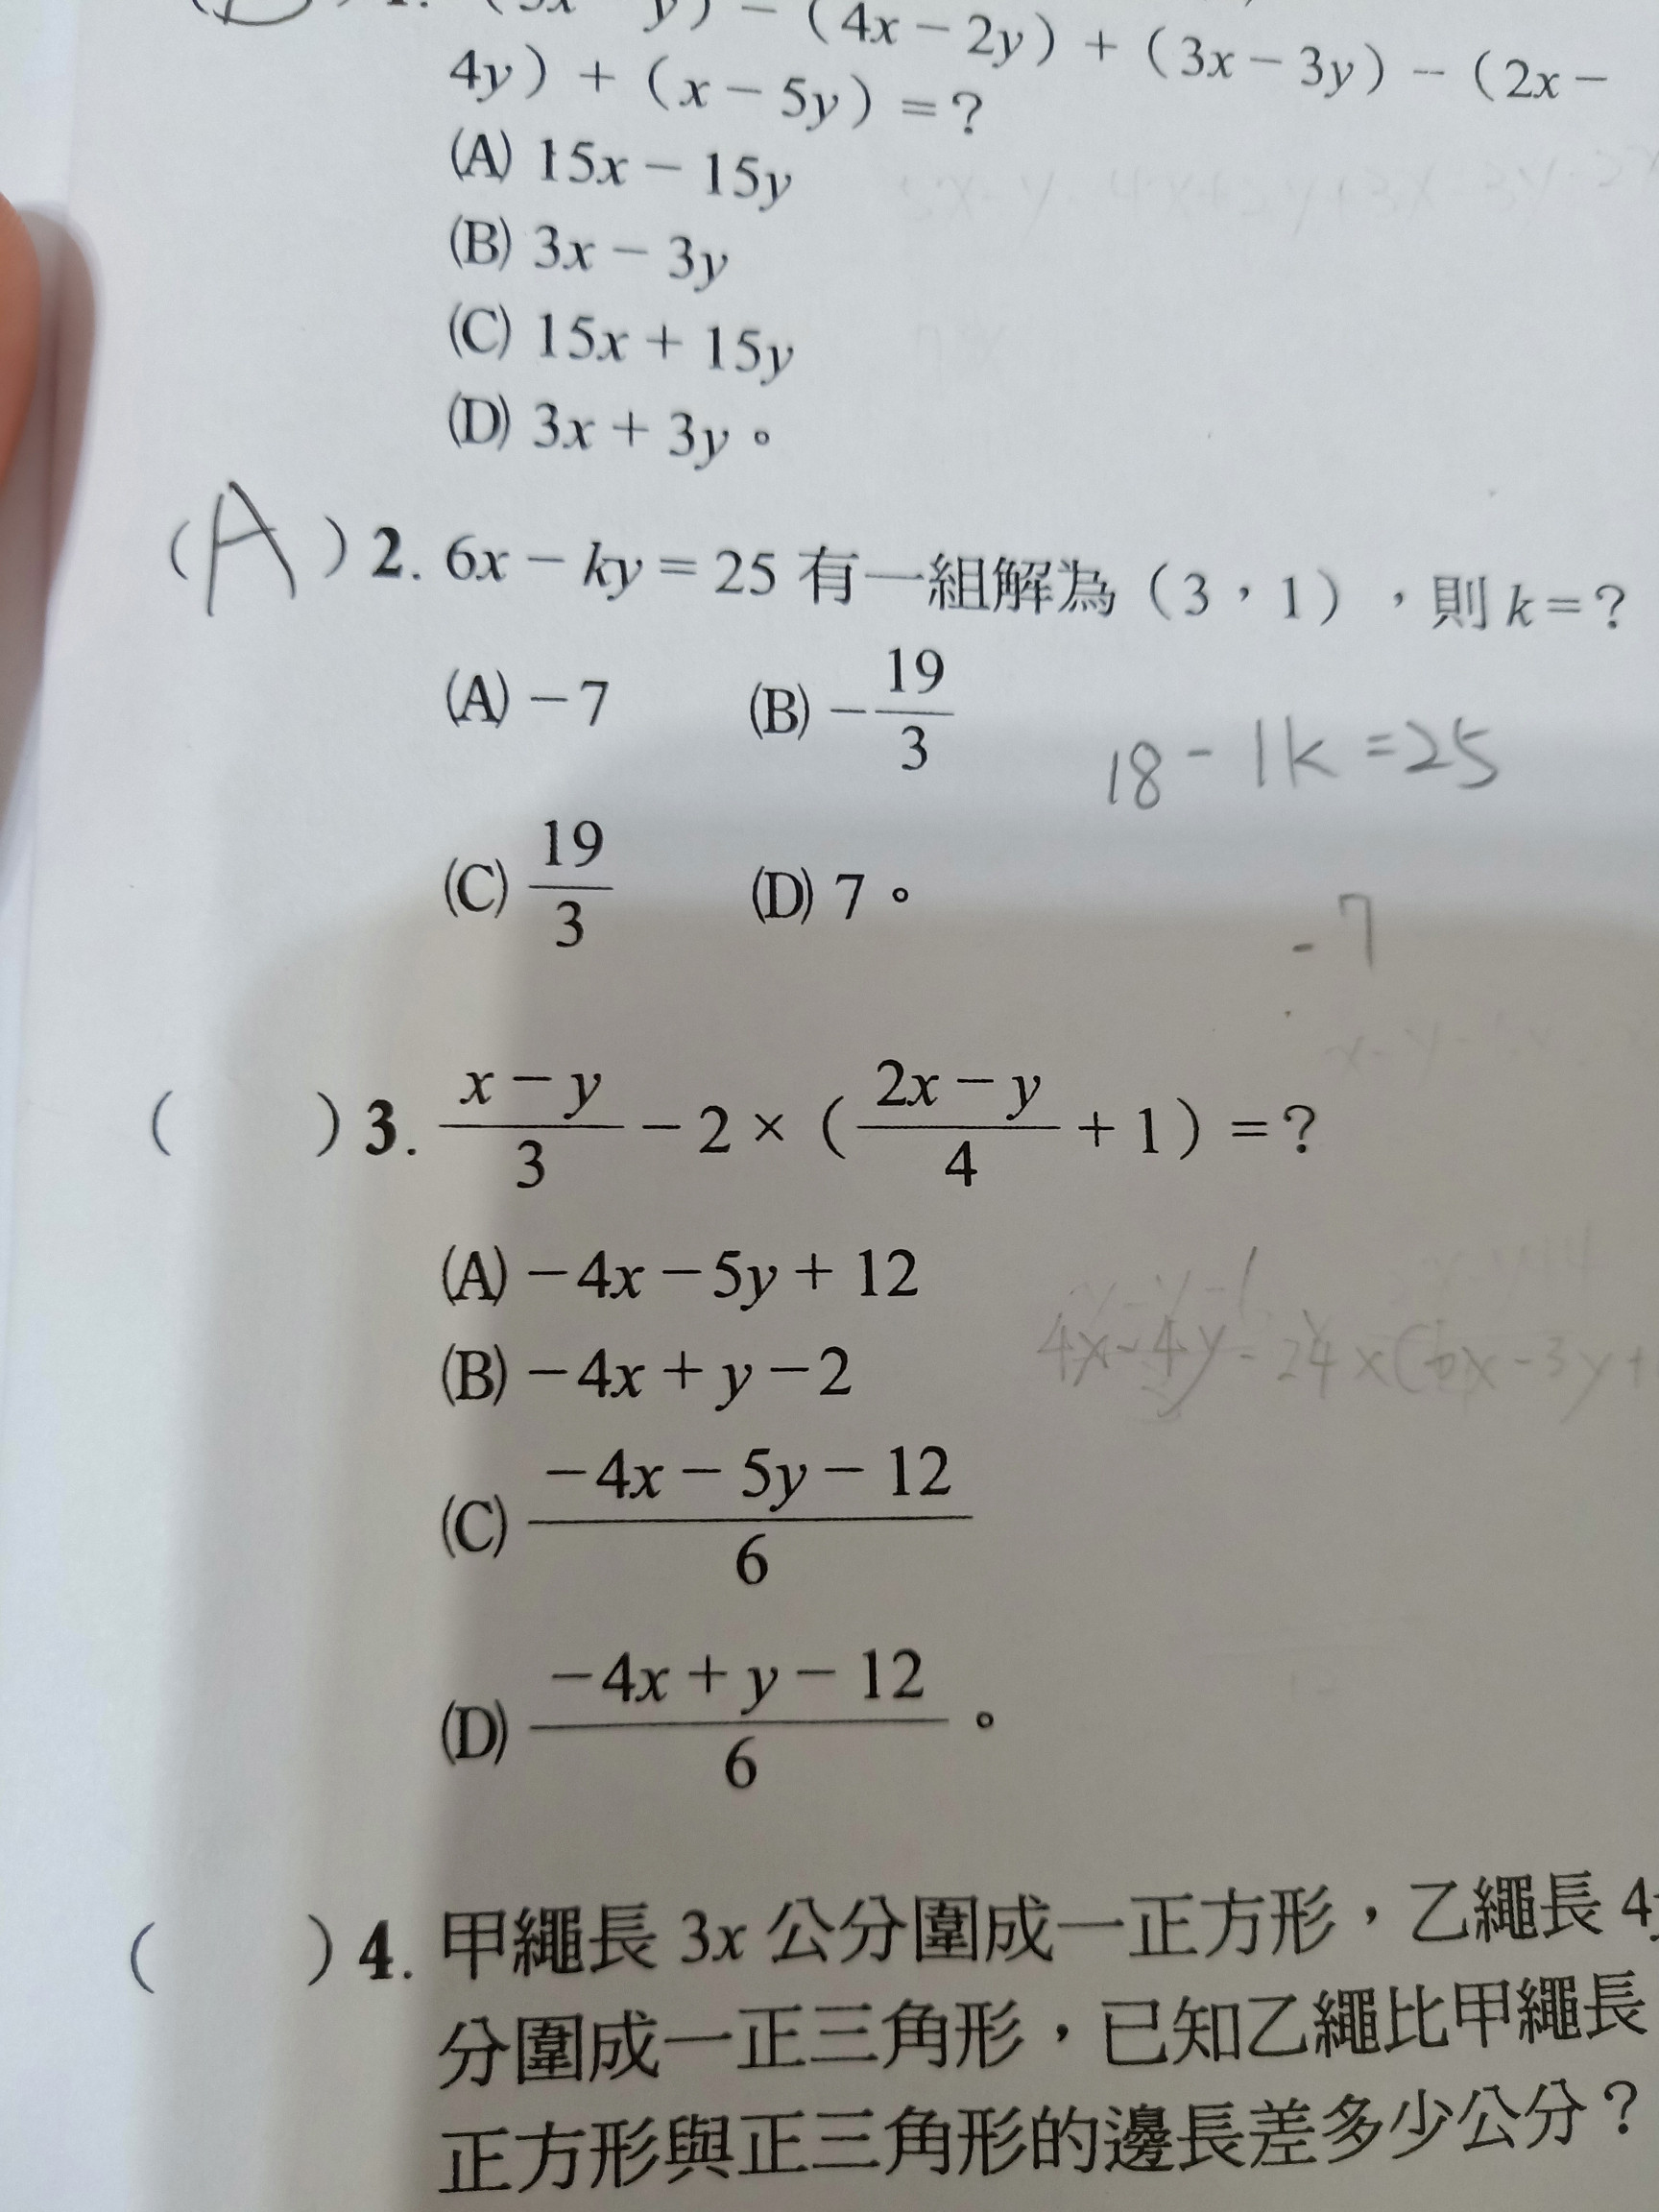 1. (5x－y)－(4x－2y)＋(3x－3y)－(2x－
4y)＋(x－5y)＝?
(A) 15x－15y
(B) 3x－3y
(C) 15x＋15y
(D) 3x＋3y。
(A) 2. 6x－ky＝25 有一組解為(3,1),則 k＝?
(A) －7 (B) －19/3
18 - 1k = 25
(C) 19/3 (D) 7。
-7
( ) 3. (x－y)/3－2×((2x－y)/4＋1)＝?
(A) －4x－5y＋12
(B) －4x＋y－2
4x-4y-24x(6x-3y+
(C) (－4x－5y－12)/6
(D) (－4x＋y－12)/6。
( ) 4. 甲繩長 3x 公分圍成一正方形,乙繩長 4
分圍成一正三角形,已知乙繩比甲繩長
正方形與正三角形的邊長差多少公分?